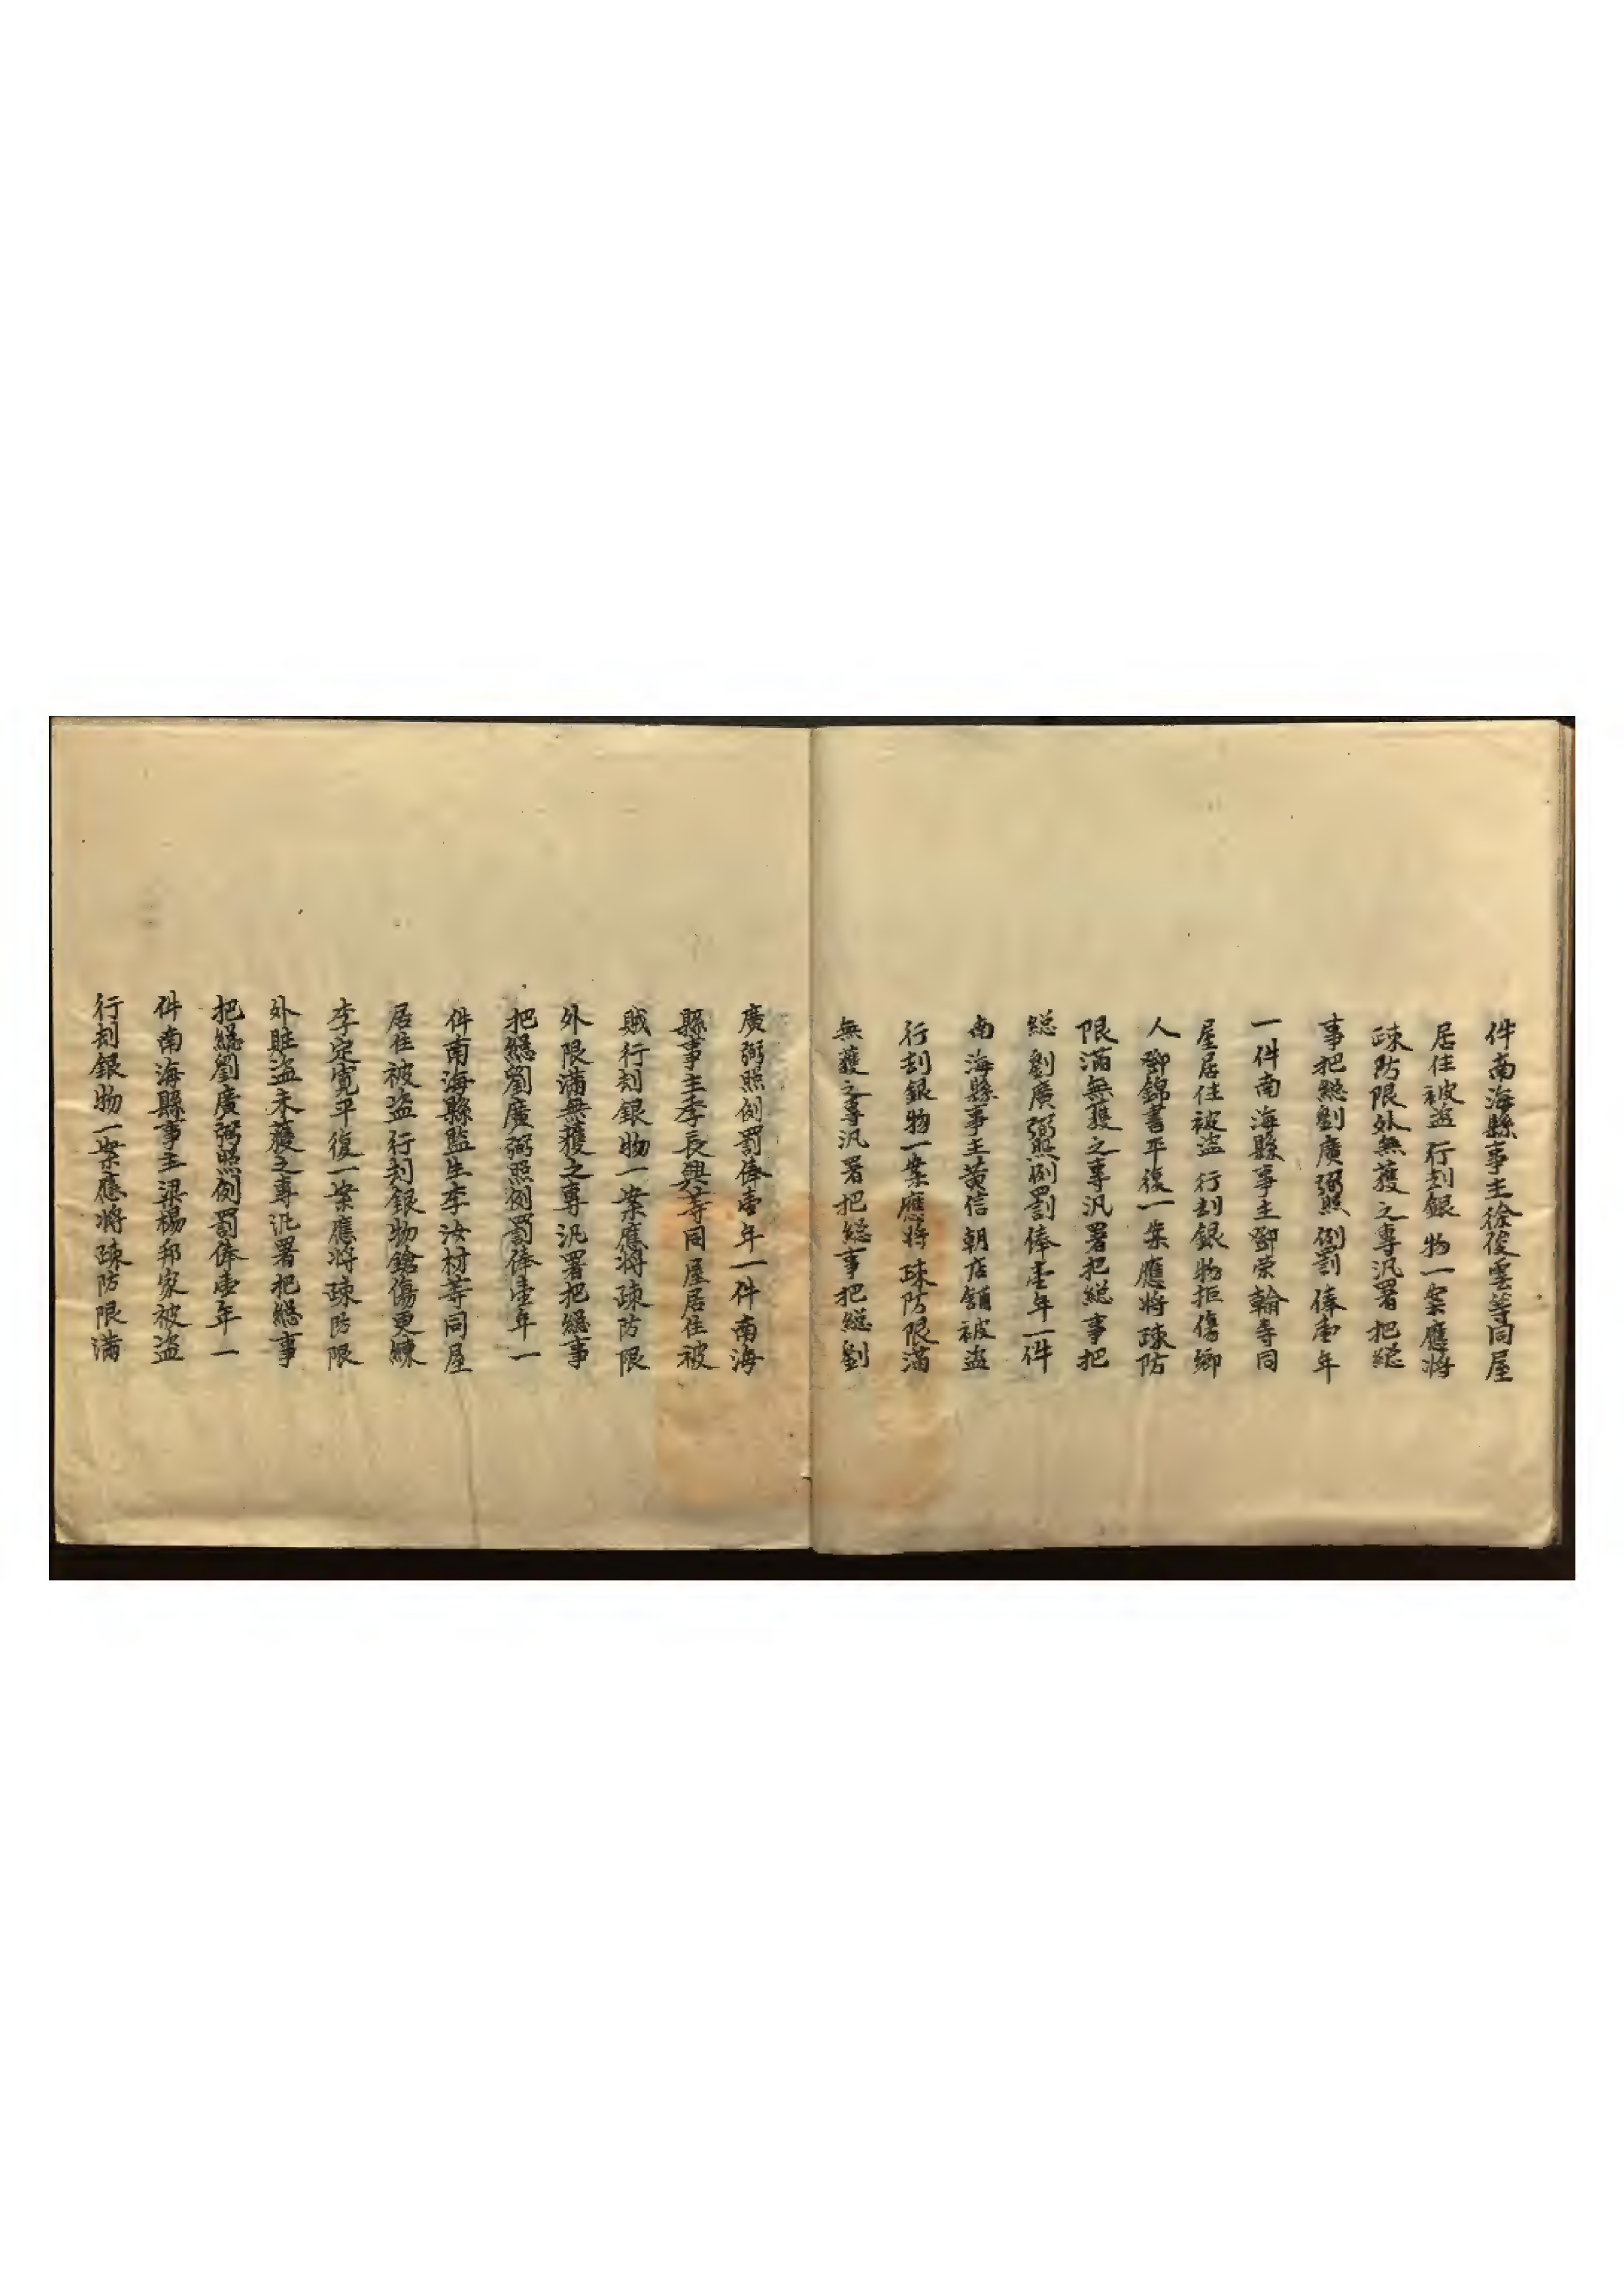 件南海縣事主徐俊雲等同屋
居住被盗行刦銀物一案應將
疎防限外無獲之專汛署把総
事把総劉廣弼照例罰俸壹年
一件南海縣事主鄧荣翰等同
屋居住被盗行刦銀物拒傷鄉
人鄧錦書平復一案應將疎防
限滿無獲之專汛署把総事把
総劉廣弼照例罰俸壹年一件
南海縣事主黄信朝店舖被盗
行刦銀物一案應将疎防限滿
無獲之專汛署把総事把総劉
廣弼照例罰俸壹年一件南海
縣事主李長興等同屋居住被
賊行刦銀物一案應将疎防限
外限滿無獲之專汛署把総事
把總劉廣弼照例罰俸壹年一
件南海縣監生李汝材等同屋
居住被盗行刦銀物鎗傷更練
李定寬平復一案應將疎防限
外賍盗未獲之專汛署把總事
把總劉廣弼照例罰俸壹年一
件南海縣事主梁楊邦家被盗
行刦銀物一案應將疎防限滿